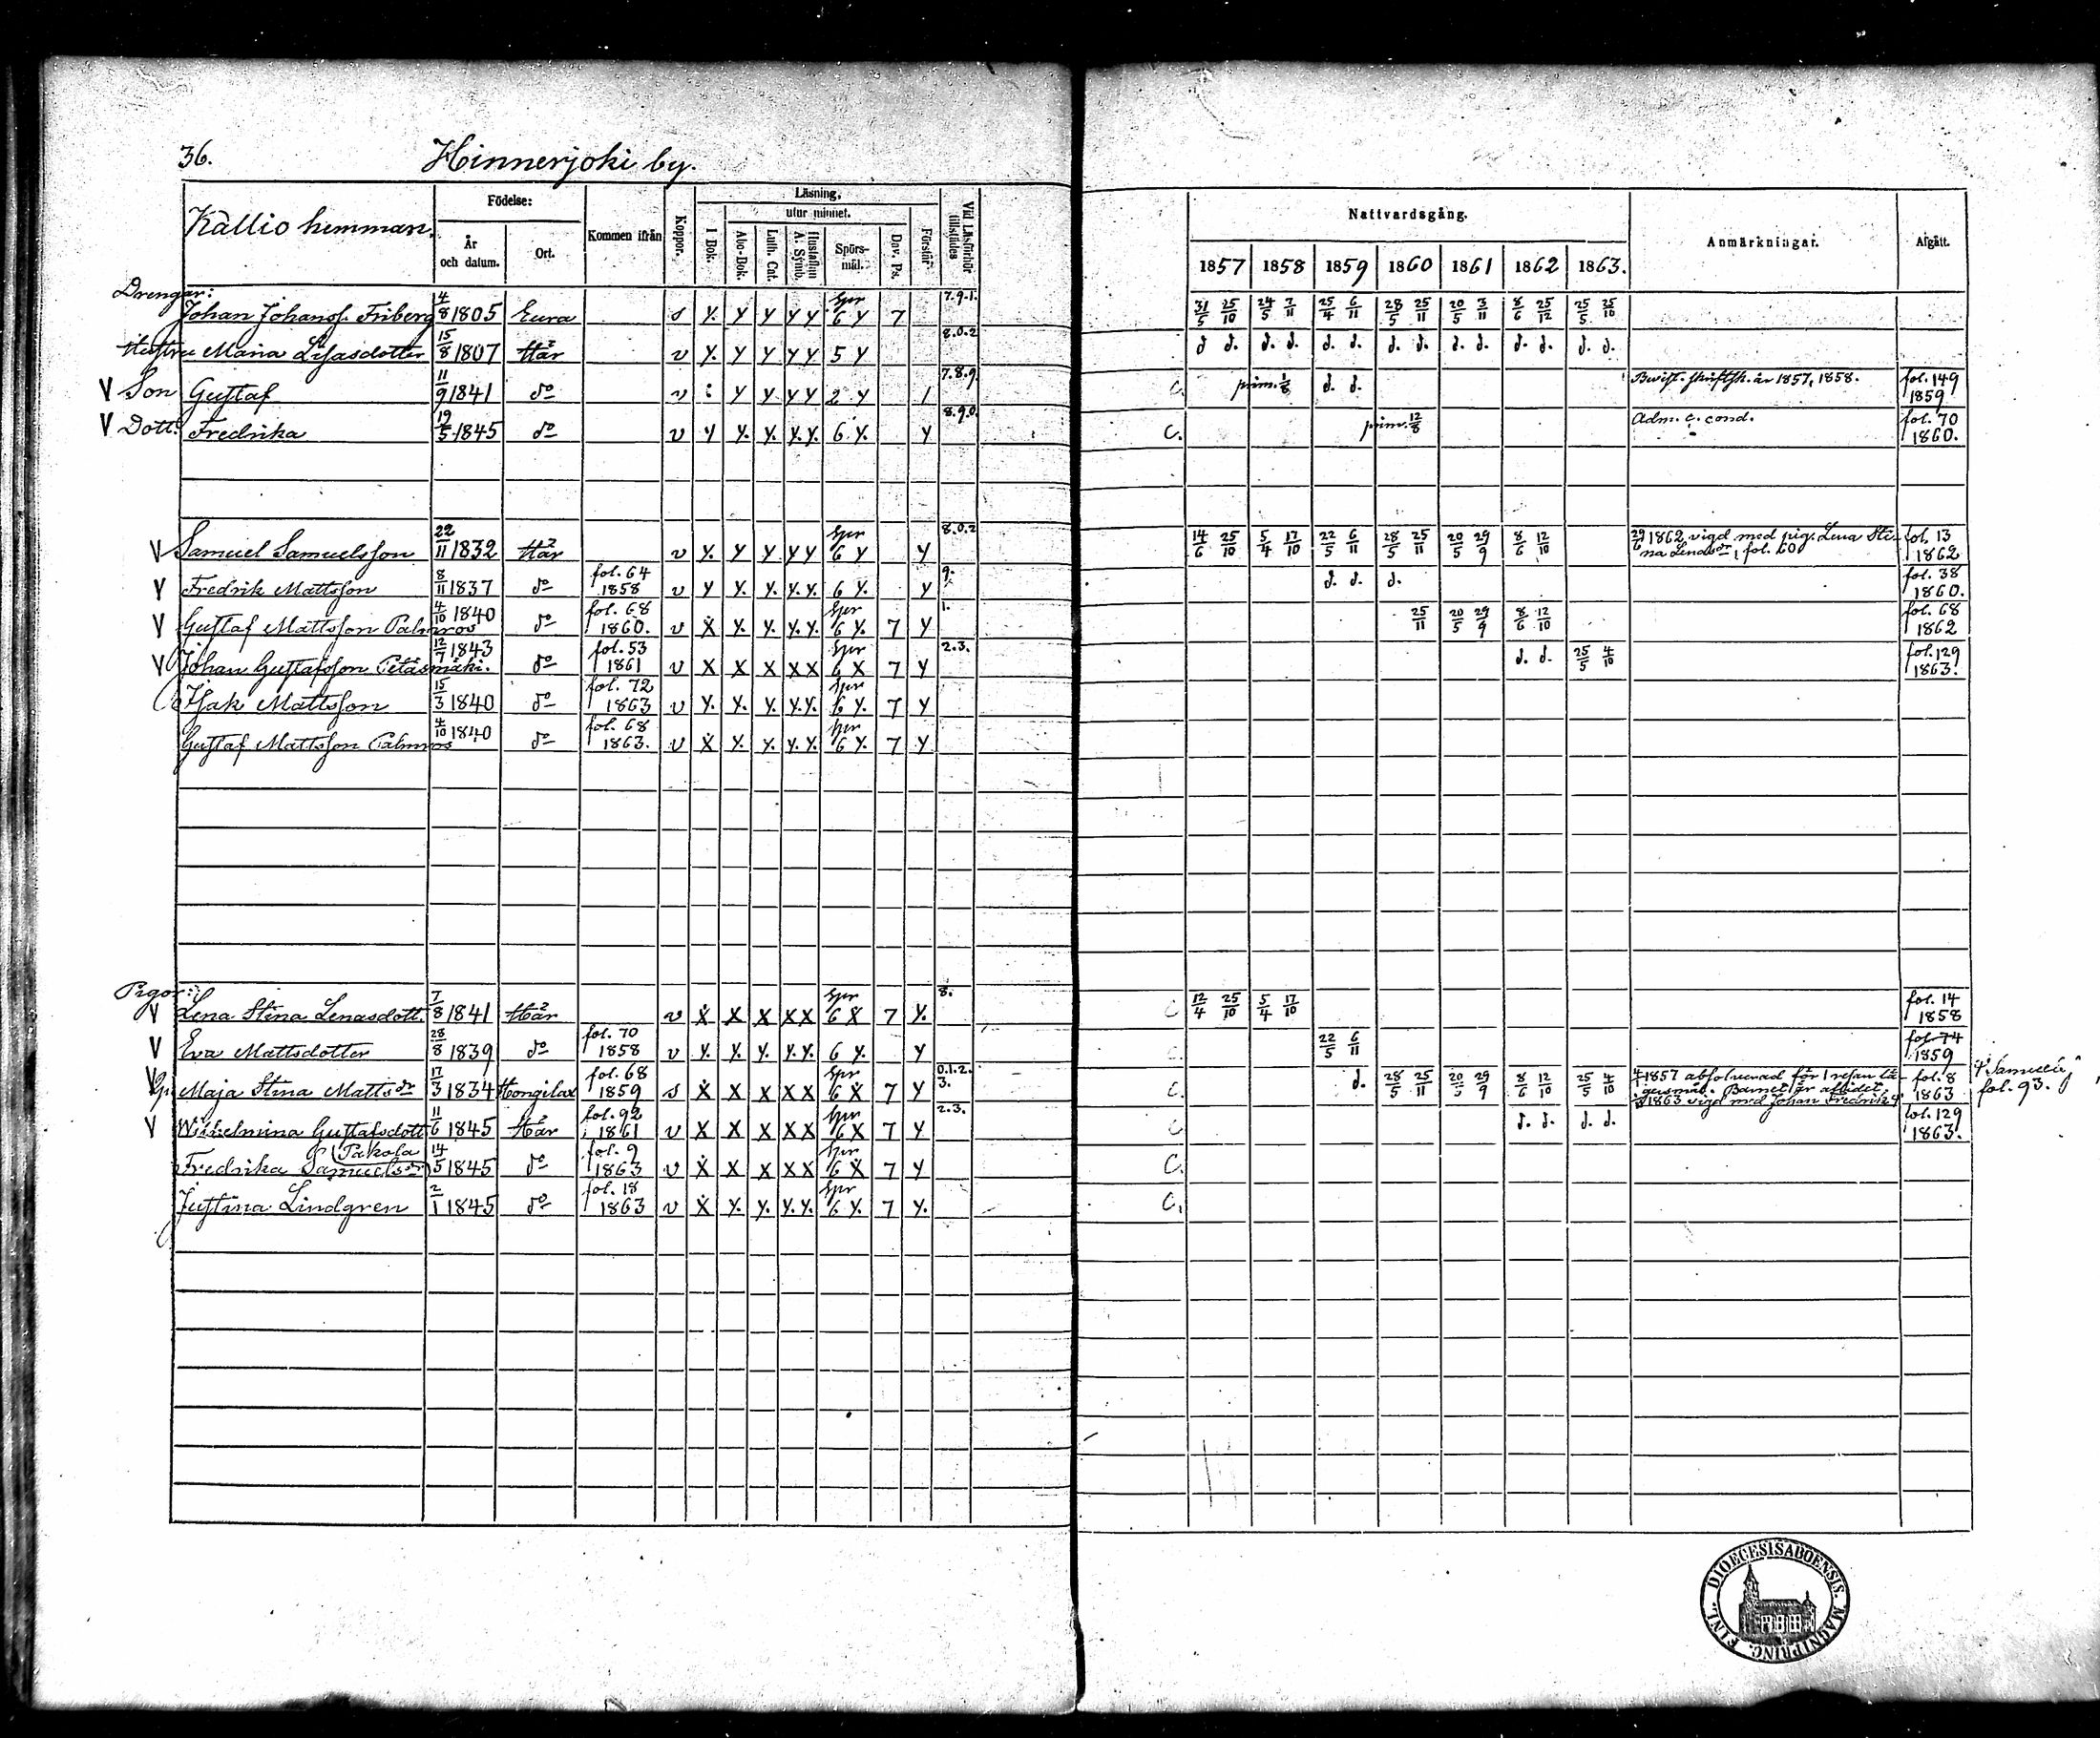 36. Hinnerjoki by.
Kallio hemman.
Födelse:
År och datum.
Ort.
Kommen ifrån
Koppor.
Läsning,
I Bok.
utur minnet.
Abc-Bok.
Luth. Cat.
Hustaflan A: Symb.
Spörs-mål.
Dav. Ps.
Förstår
Vid Läsförhör tillstädes
Nattvardsgång.
1857 1858 1859 1860 1861 1862 1863.
Anmärkningar.
Afgått.
Drengar:
Johan Johanss. Friberg 4/8 1805 Eura s y. y y y y Spr 6 y 7 7.9.1. 31/5 25/10 24/5 7/11 25/4 6/11 28/5 25/11 20/5 3/11 8/6 25/12 25/5 25/10
Hustru Maria Lisasdotter 15/8 1807 Här v y. y y y y 5 y 8.0.2 d d. d. d. d. d. d. d. d. d. d. d. d. d.
V Son Gustaf 11/9 1841 do v : y y y y 2 y / 7.8.9. C. prim. 1/8 d. d. 1857, 1858. fol. 149 1859
V Dott. Fredrika 19/5 1845 do v y y. y. y. y. 6 y. y 8.9.0. C. prim. 12/8 Adm. c. cond. fol. 70 1860.
V Samuel Samuelsson 22/11 1832 Här v y. y y y y Spr 6 y y 8.0.2 14/6 25/10 5/4 17/10 22/5 6/11 28/5 25/11 20/5 29/9 8/6 12/10 29/6 1862 vigd med pig. Lena Sti-na Lenasdr, fol. 60 fol. 13 1862
V Fredrik Mattsson 8/11 1837 do fol. 64 1858 v y y. y. y. y. 6 y. y 9. d. d. d. fol. 38 1860.
V Gustaf Mattsson Palmroos 4/10 1840 do fol. 68 1860. v X y. y. y. y. Spr 6 y. 7 y 1. 25/11 20/5 29/9 8/6 12/10 fol. 68 1862
V Johan Gustafsson Petäsmäki. 12/7 1843 do fol. 53 1861 v X X X X X Spr 6 X 7 y 2.3. d. d. 25/5 4/10 fol. 129 1863.
Isak Mattsson 15/3 1840 do fol. 72 1863 v y. y. y. y. y. Spr 6 y. 7 y
Gustaf Mattsson Palmroos 4/10 1840 do fol. 68 1863. v X y. y. y. y. Spr 6 y. 7 y.
Pigor:
V Lena Stina Lenasdott. 7/8 1841 Här v X X X X X Spr 6 X 7 y. 8. C 12/4 25/10 5/4 17/10 fol. 14 1858
V Eva Mattsdotter 28/8 1839 do fol. 70 1858 v y. y. y. y. y. 6 y. y C. 22/5 6/11 fol. 74 1859
V Maja Stina Mattsdr 17/3 1834 Hongilax fol. 68 1859 s X X X X X Spr 6 X 7 y 0.1.2. 3. C. d. 28/5 25/11 20/5 29/9 8/6 12/10 25/5 4/10 1857 absolverad för 1 resan lä-gersmål. Barnet är aflidet. 1863 vigd med Johan Fredrik fol. 8 1863 fol. 93.
V Wilhelmina Gustafsdott. 11/6 1845 Här fol. 92 1861 v X X X X X Spr 6 X 7 y 2.3. C d. d. d. d. fol. 129 1863.
Fredrika Samuelsdr (Pakola) 14/5 1845 do fol. 9 1863 v X X X X X Spr 6 X 7 y C.
Justina Lindgren 2/1 1845 do fol. 18 1863 v X y. y. y. y. Spr 6 y. 7 y. C.
DIOECESIS ABOENSIS. MAGNI PRINC. FINL.